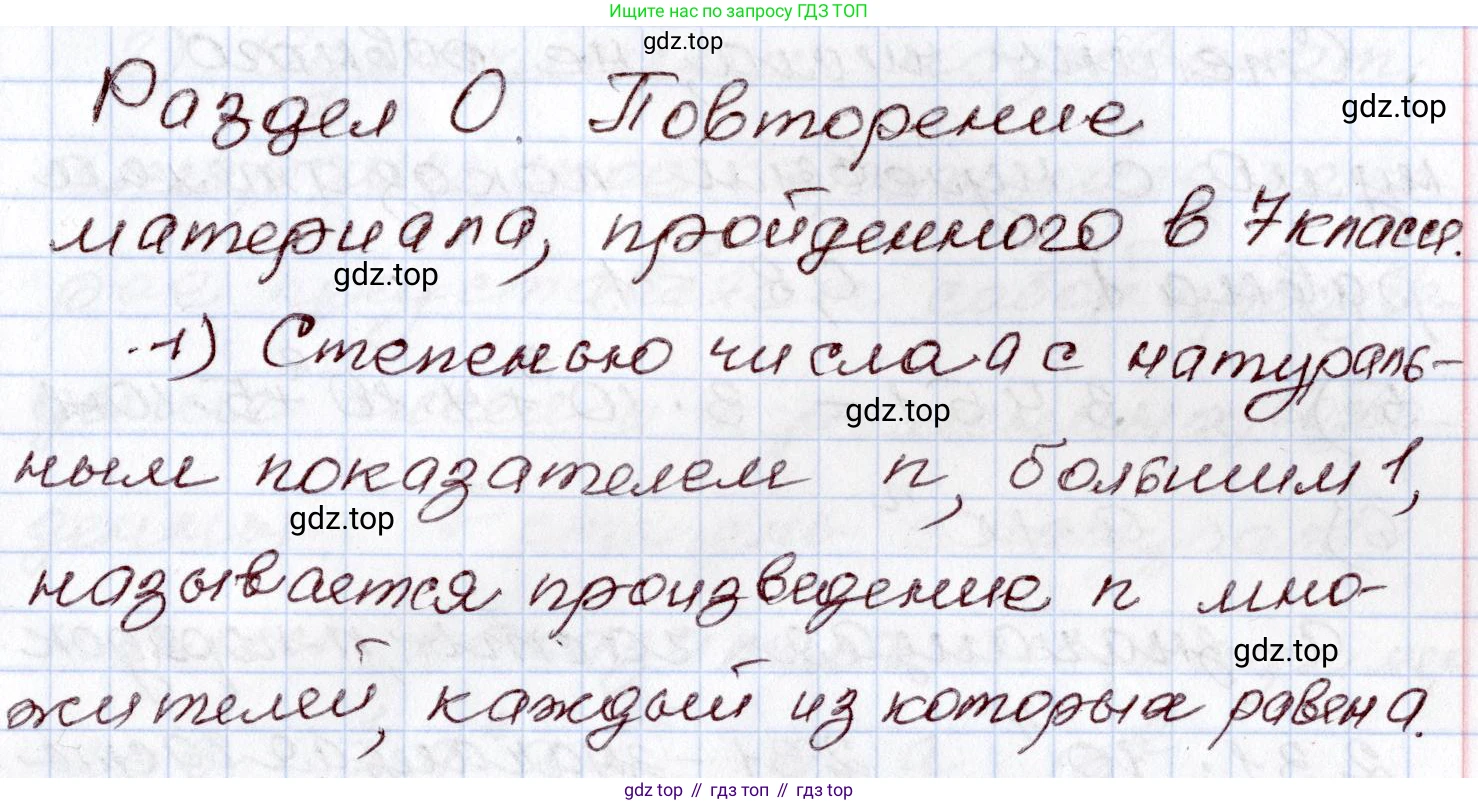 Ищите нас по запросу ГДЗ ТОП
gdz.top
Раздел 0. Повторение
gdz.top
материала, пройденного в 7 классе.
gdz.top
1) Степенью числа a с натураль-
gdz.top
ным показателем n, большим 1,
gdz.top
называется произведение n мно-
gdz.top
жителей, каждый из которых равен a.
gdz top // гдз топ // гдз top